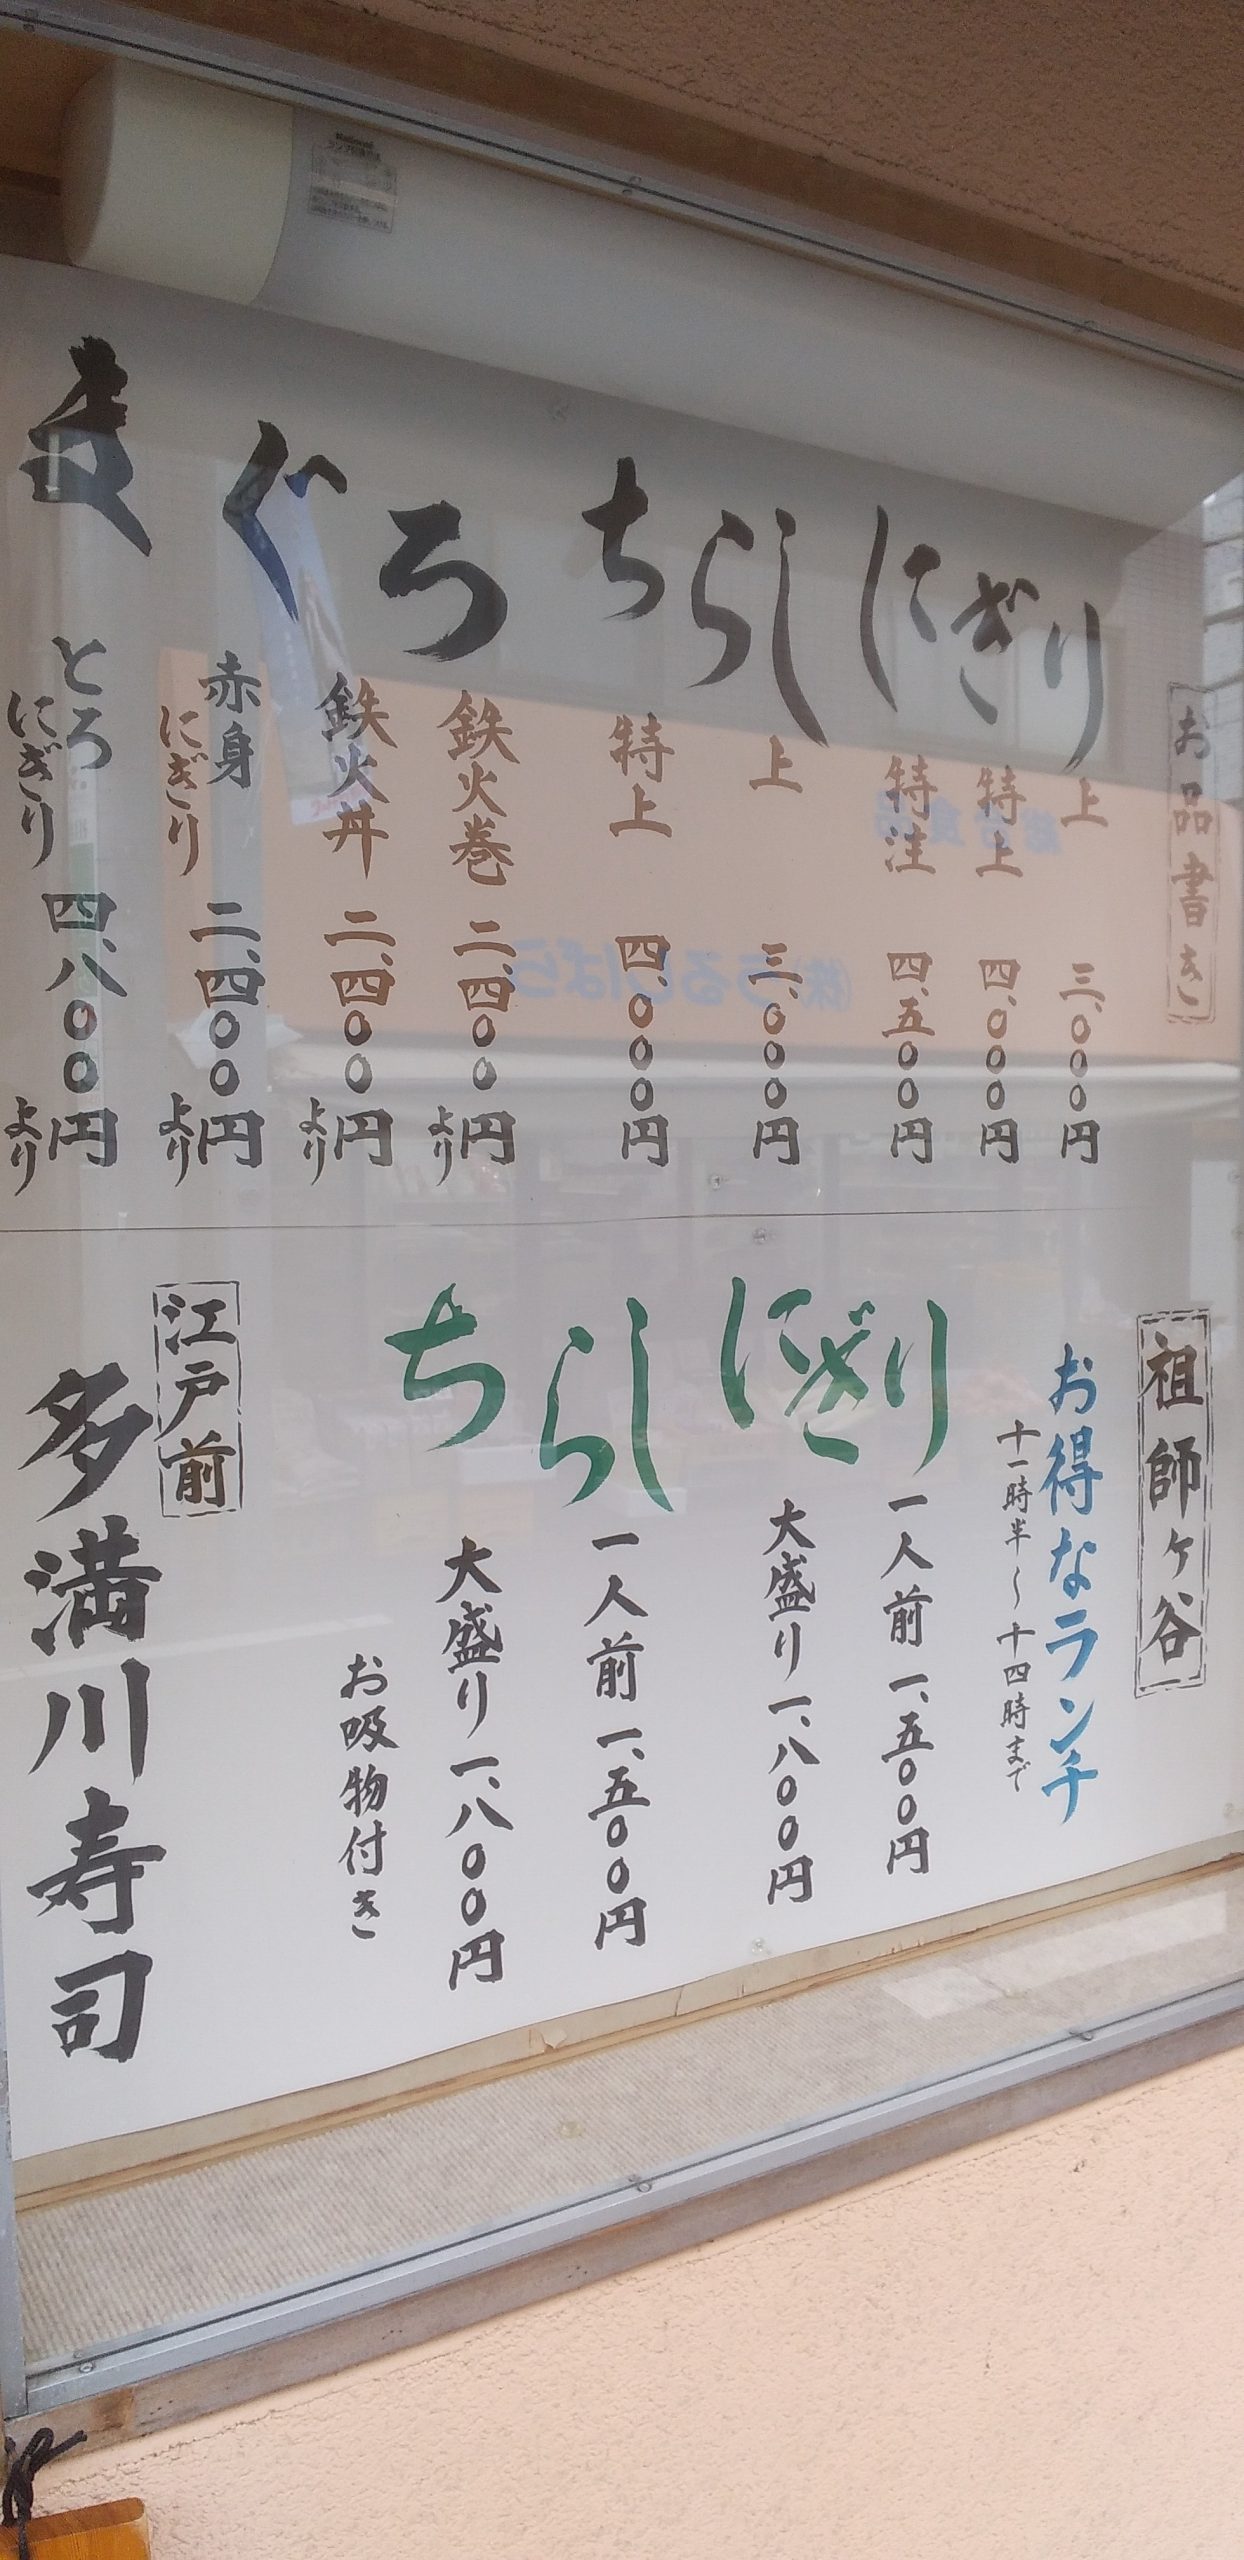 お品書き
にぎり
上 三、〇〇〇円
特上 四、〇〇〇円
特注 四、五〇〇円
ちらし
上 三、〇〇〇円
特上 四、〇〇〇円
まぐろ
鉄火巻 二、四〇〇円より
鉄火丼 二、四〇〇円より
赤身にぎり 二、四〇〇円より
とろにぎり 四、八〇〇円より
祖師ヶ谷
お得なランチ
十一時半〜十四時まで
にぎり
一人前 一、五〇〇円
大盛り 一、八〇〇円
ちらし
一人前 一、五〇〇円
大盛り 一、八〇〇円
お吸物付き
江戸前
多満川寿司